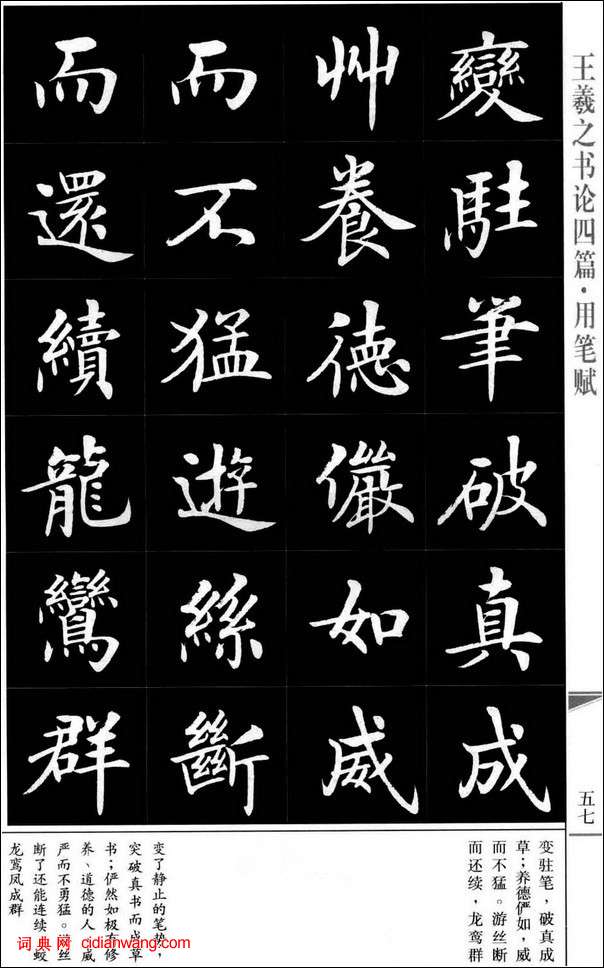 王羲之书论四篇·用笔赋
變駐筆破真成
艸養德儼如威
而不猛遊絲斷
而還續龍鸞群
五七
变驻笔，破真成
草；养德俨如，威
而不猛。游丝断
而还续，龙鸾群
变了静止的笔势，
突破真书而成草
书；俨然如极有修
养、道德的人，威
严而不勇猛。丝
断了还能连续，蛟
龙鸾凤成群
词典网 cidianwang.com